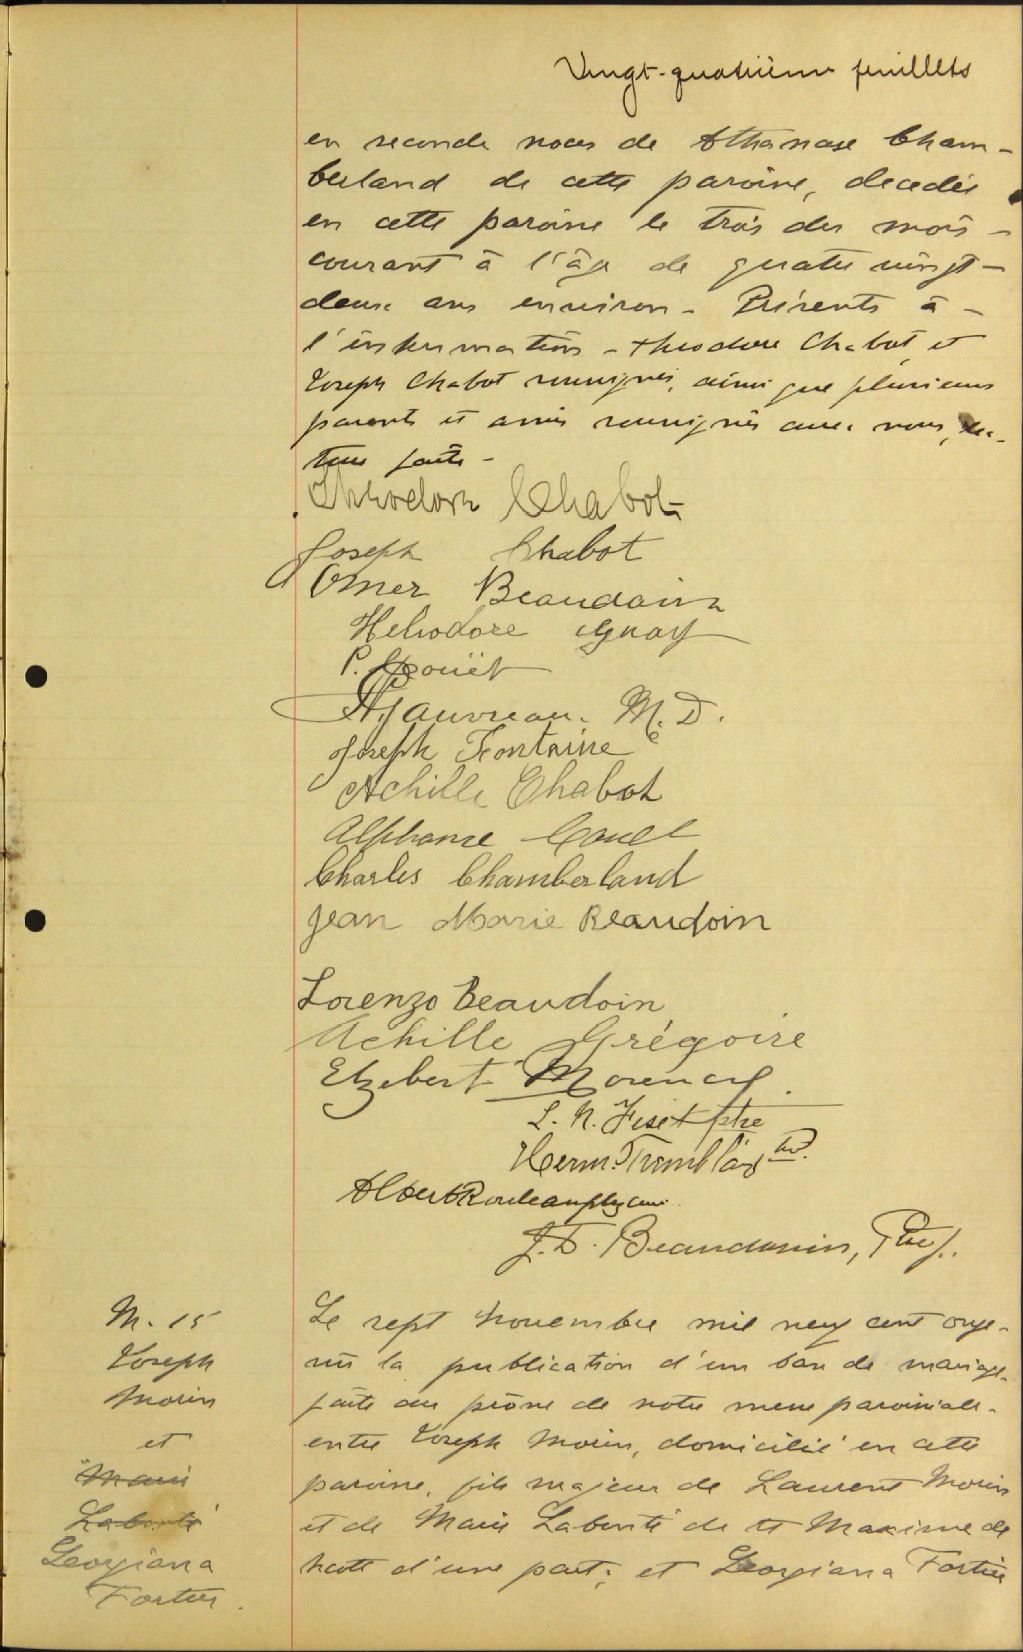 Vingt-quatrième feuillets
en seconde noces de Athanase Cham-
berland de cette paroisse, décédée
en cette paroisse le trois du mois
courant à l'âge de quatre vingt-
deux ans environ - Présents à -
l'inhumation - Théodore Chabot et
Joseph Chabot soussignés, ainsi que plusieurs
parents et amis soussignés avec nous, lec-
ture faite -
Théodore Chabot
Joseph Chabot
Omer Beaudoin
Heliodore Guay
P. Drouët
Gauvreau. M.D.
Joseph Fontaine
Achille Chabot
Alphonse
Charles Chamberland
Jean Marie Beaudoin
Lorenzo Beaudoin
Achille Grégoire
Elzebert Morency
L. N. Fiset ptre
Herm. Tremblay
Albert Rouleau ptre curé
J. D. Beaudouin, Ptre.
M. 15
Joseph
Morin
et
Marie
Labonté
Georgiana
Fortier.
Le sept novembre mil neuf cent onze -
vu la publication d'un ban de mariage
faite au prône de notre messe paroissiale -
entre Joseph Morin, domicilié en cette
paroisse, fils majeur de Laurent Morin
et de Marie Labonté de St Maxime de
Scott d'une part; et Georgiana Fortier